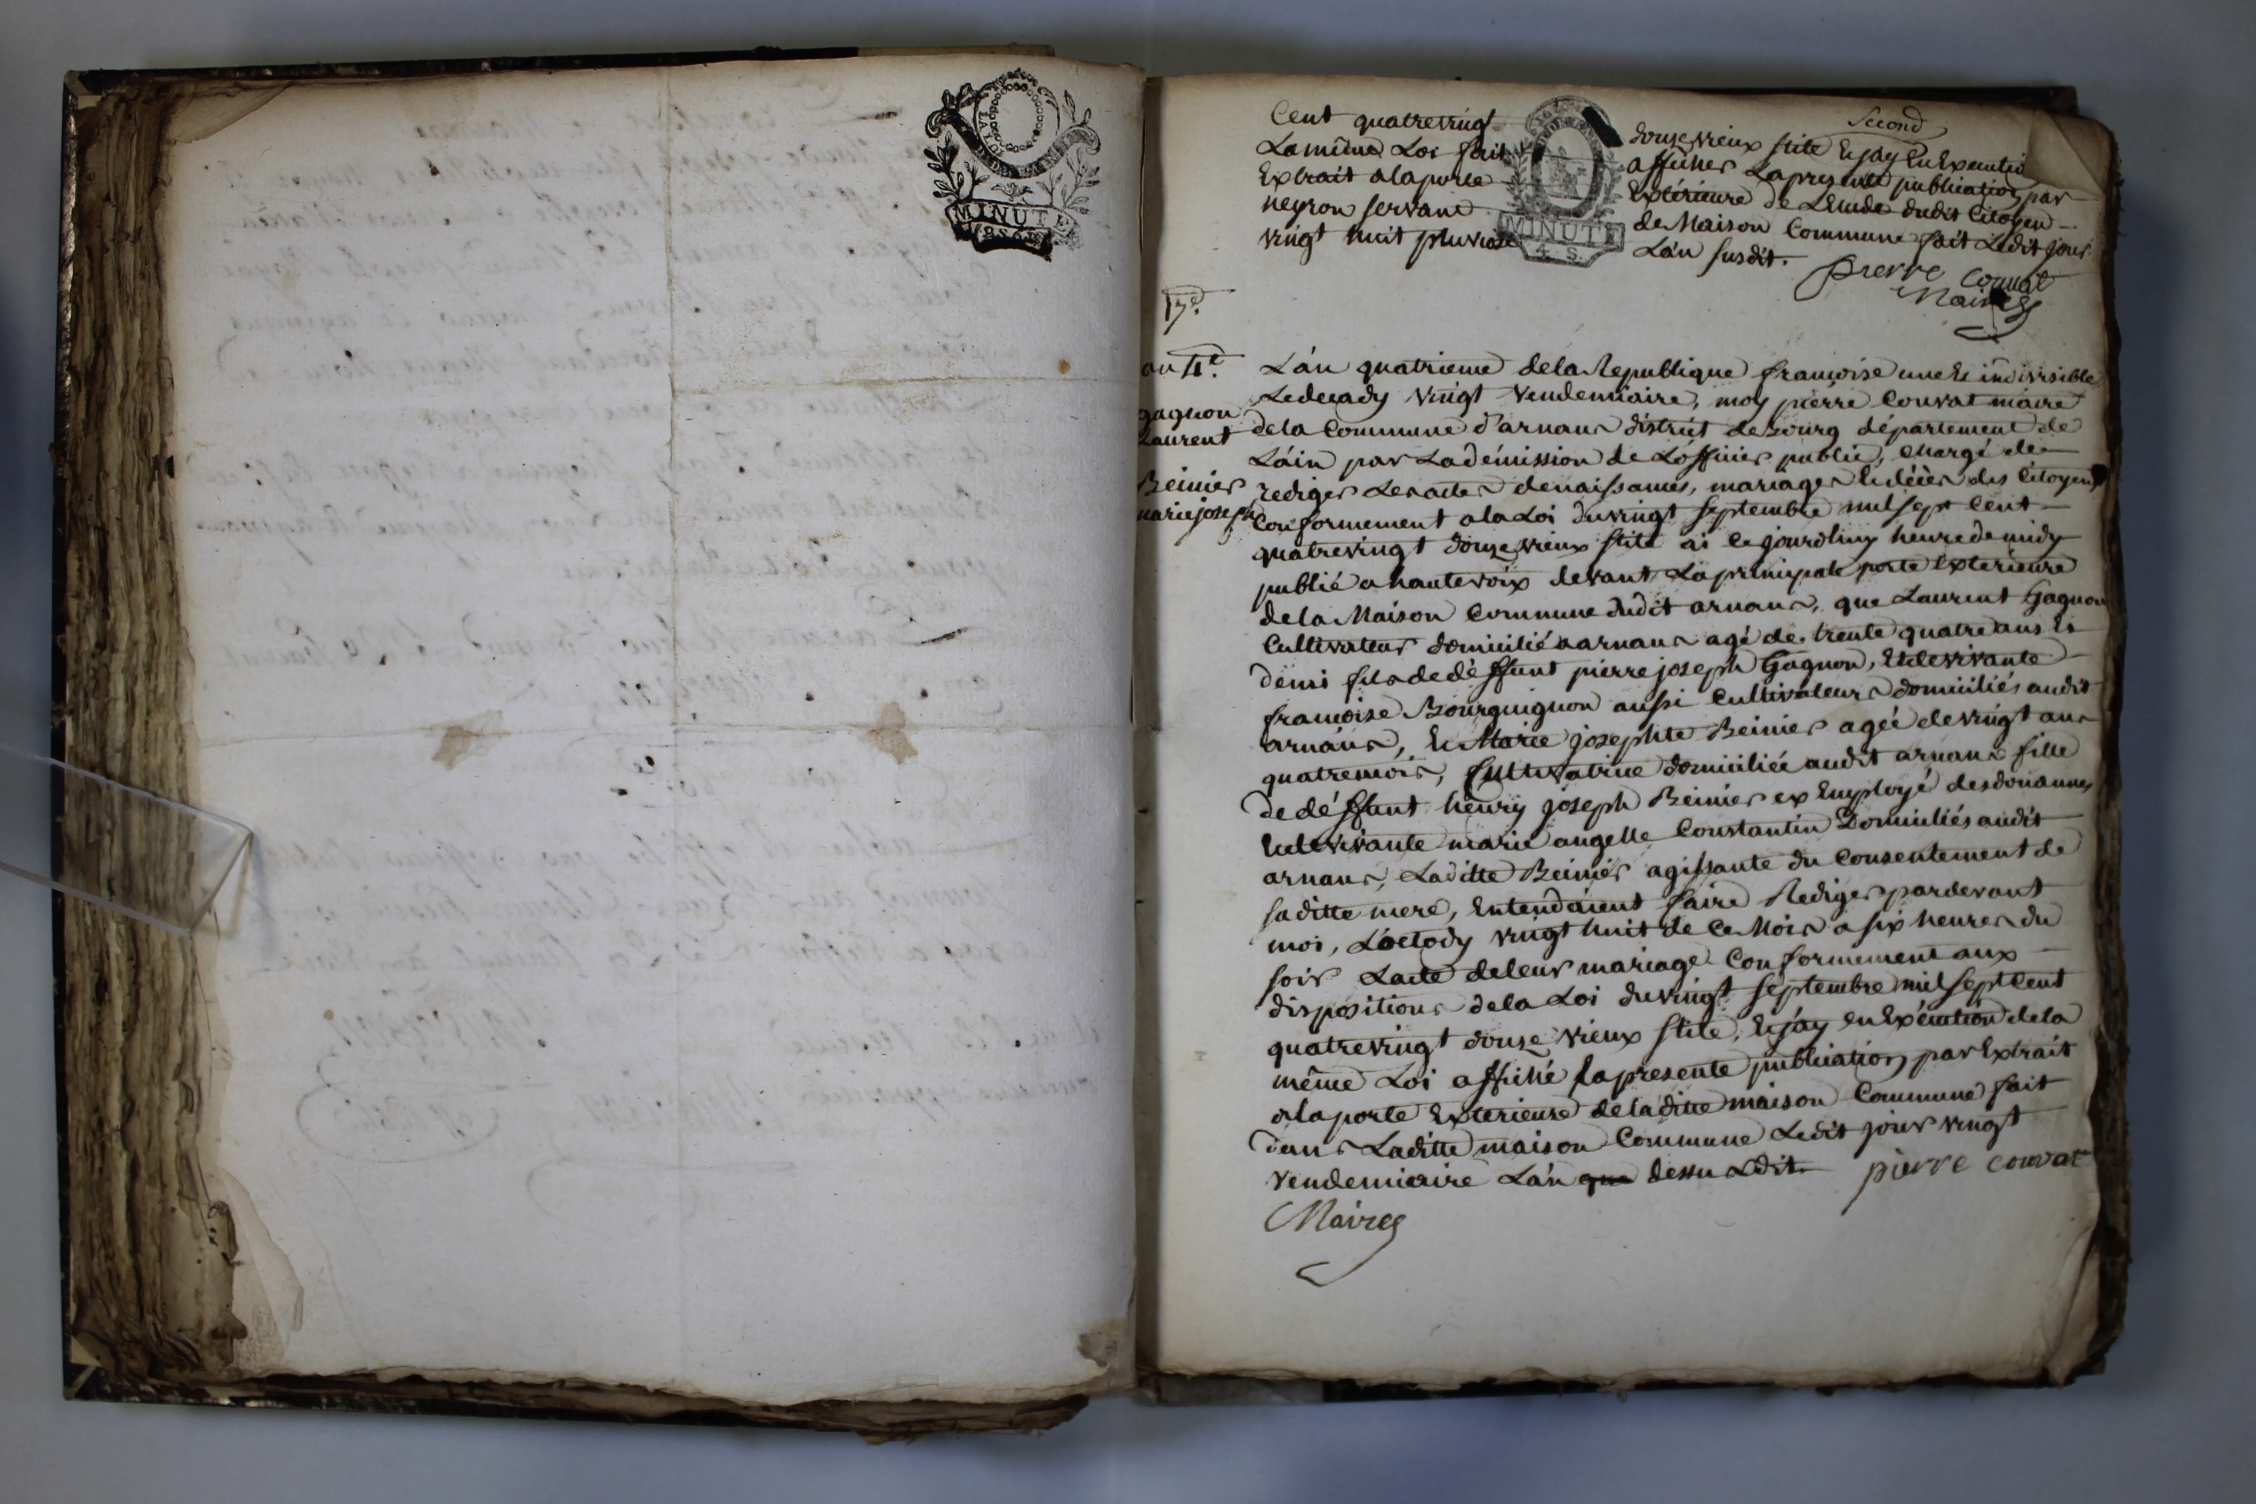 MINUTE
Second
Cent quatrevingt douze vieux stile Et j'ay En Execution
La même Loi fait afficher La presente publication par
Extrait a la porte Exterieure de L'Etude dudit Citoyen
neyron servant de Maison Commune fait Ledit jour
vingt huit pluviose L'an susdit.
MINUTE
4. S.
pierre Couvat
Maire
17e.
an 4e.
gagnon
Laurent
Beinier
marie joseph
L'an quatrieme de la Republique françoise une Et indivisible
Le decady vingt vendemiaire, moy pierre Couvat maire
de la Commune d'arnans district de Bourg département de
L'ain par La démission de L'officier public, chargé de
rediger Les actes de naissances, mariages Et décès des Citoyens
Conformement a la Loi du vingt septembre mil sept Cent
quatrevingt douze vieux stile ai Ce jourdhuy heure de midy
publié a haute voix devant La principale porte Exterieure
de la Maison Commune dudit arnans, que Laurent Gagnon
Cultivateur domicilié a arnans agé de trente quatre ans Et
demi fils de déffunt pierre joseph Gagnon, Et de vivante
françoise Bourguignon aussi Cultivateurs domiciliés audit
arnans, Et Marie josephte Beinier agée de vingt ans
quatre mois, Cultivatrice domiciliée audit arnans fille
de déffunt henry joseph Beinier ex Employé des douannes
Et de vivante marie angelle Constantin Domiciliés audit
arnans, Laditte Beinier agissante du Consentement de
saditte mere, Entendoient faire Rediger pardevant
moi, L'octody vingt huit de Ce Mois a six heures du
soir L'acte de leur mariage Conformement aux
dispositions de la Loi du vingt septembre mil sept Cent
quatrevingt douze vieux stile, Et j'ay en Exécution de la
même Loi affiché la presente publication par Extrait
a la porte Exterieure de laditte maison Commune fait
dans Laditte maison Commune Ledit jour vingt
vendemiaire L'an que dessus dit. pierre couvat
Maire